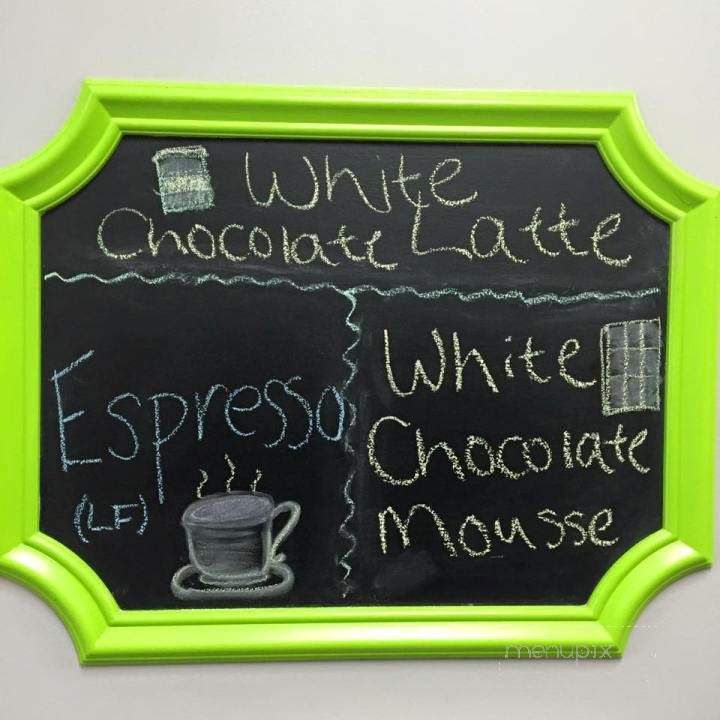 White
Chocolate Latte
Espresso
(LF)
White
Chocolate
Mousse
menupix